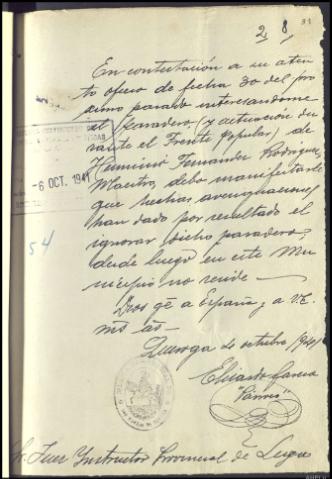 28,
En contestación a su aten
to oficio de fecha 30 del pró
ximo pasado interesándome
el paradero (y actuación du
rante el Frente Popular) de
Herminio Fernandez Rodriguez,
Maestro, debo manifestarle
que hechas averiguaciones
han dado por resultado el
ignorar dicho paradero;
desde luego en este Mu
nicipio no reside—
Dios gª a España, a V.E.
ms as—
Quiroga 4 octubre 1941
Garcia
-6 OCT. 1941
54
Sr. Juez Instructor Provincial de Lugo